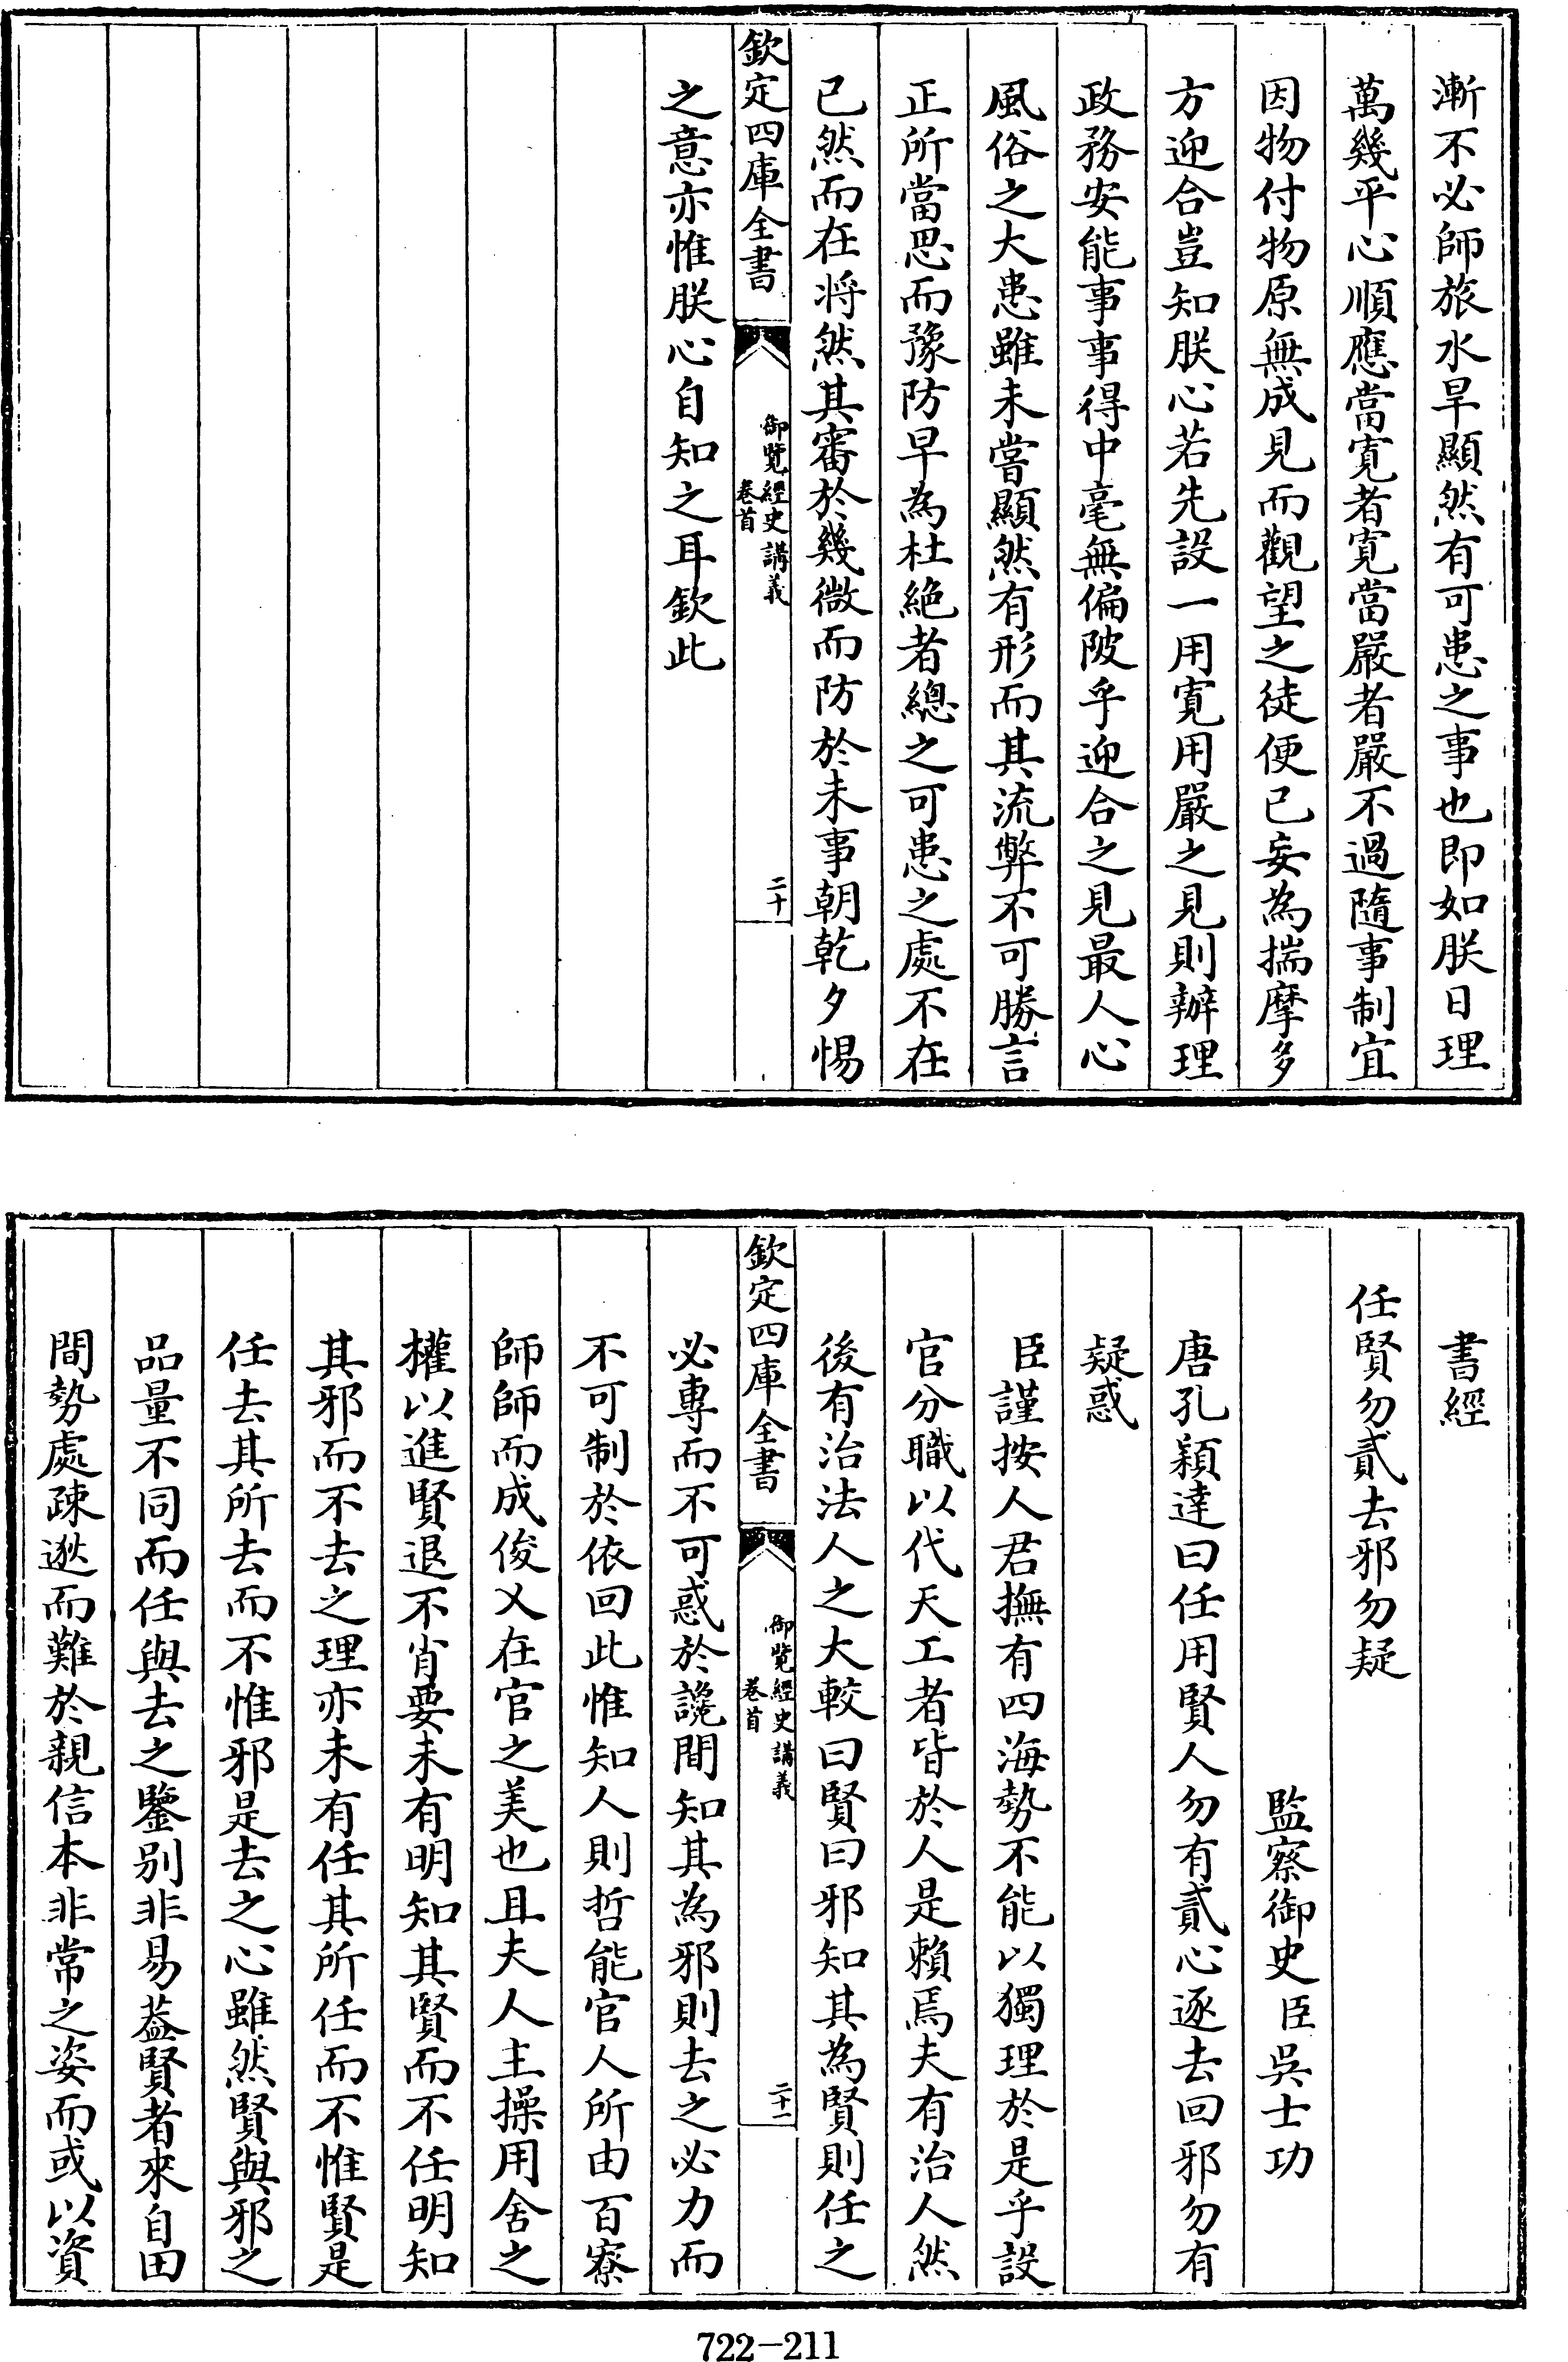 漸不必師旅水旱顯然有可患之事也即如朕日理
萬幾平心順應當寛者寛當嚴者嚴不過隨事制宜
因物付物原無成見而觀望之徒便已妄為揣摩多
方迎合豈知朕心若先設一用寛用嚴之見則辦理
政務安能事事得中毫無偏陂乎迎合之見最人心
風俗之大患雖未嘗顯然有形而其流弊不可勝言
正所當思而豫防早為杜絶者總之可患之處不在
已然而在将然其審於幾微而防於未事朝乾夕惕
欽定四庫全書
御覽經史講義
卷首
二十
之意亦惟朕心自知之耳欽此
書經
任賢勿貳去邪勿疑
監察御史臣吳士功
唐孔穎達曰任用賢人勿有貳心逐去回邪勿有
疑惑
臣謹按人君撫有四海勢不能以獨理於是乎設
官分職以代天工者皆於人是賴焉夫有治人然
後有治法人之大較曰賢曰邪知其為賢則任之
欽定四庫全書
御覽經史講義
卷首
二十一
必專而不可惑於讒間知其為邪則去之必力而
不可制於依回此惟知人則哲能官人所由百寮
師師而成俊乂在官之美也且夫人主操用舍之
權以進賢退不肖要未有明知其賢而不任明知
其邪而不去之理亦未有任其所任而不惟賢是
任去其所去而不惟邪是去之心雖然賢與邪之
品量不同而任與去之鑒别非易葢賢者來自田
間勢處疎逖而難於親信本非常之姿而或以資
722-211